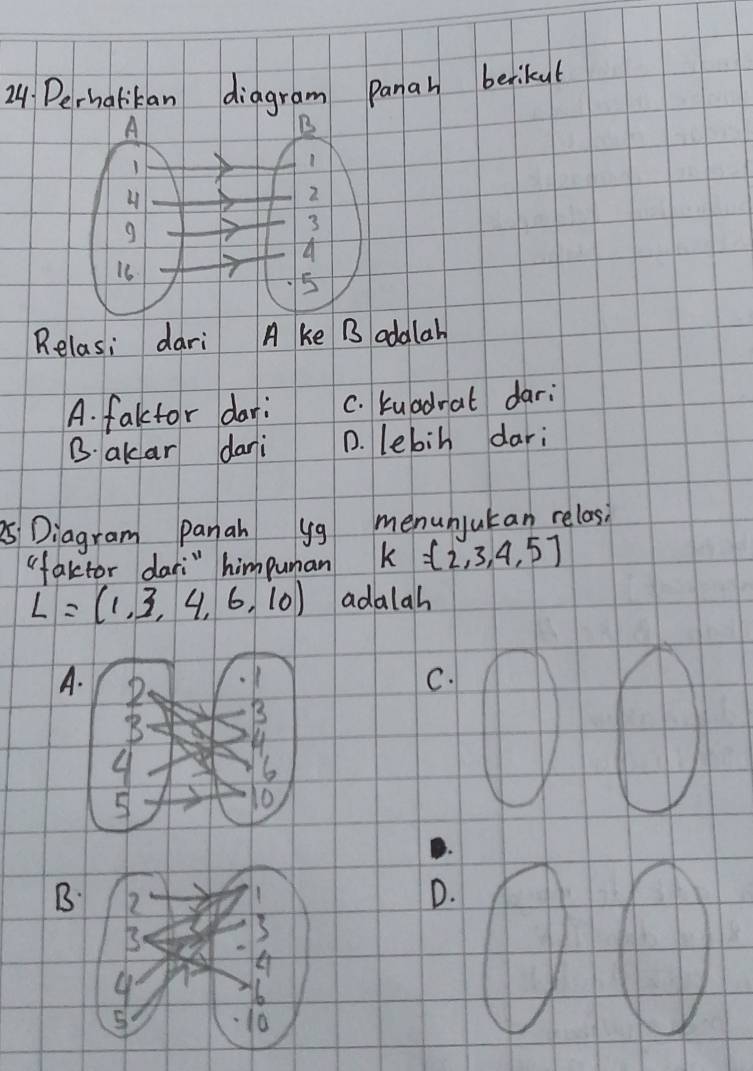 24. Perhatikan diagram panah berikut
A B
1 1
4 2
9 3
16 4
5
Relasi dari A ke B adalah
A. faktor dari C. kuadrat dari
B. akar dari D. lebih dari
25. Diagram panah yg menunjukan relasi
"faktor dari" himpunan K = {2,3,4,5]
L = (1, 3, 4, 6, 10) adalah
A. C.
2 1
3 3
4 4
5 6
10
B. D.
2 1
3 3
4 4
5 6
10